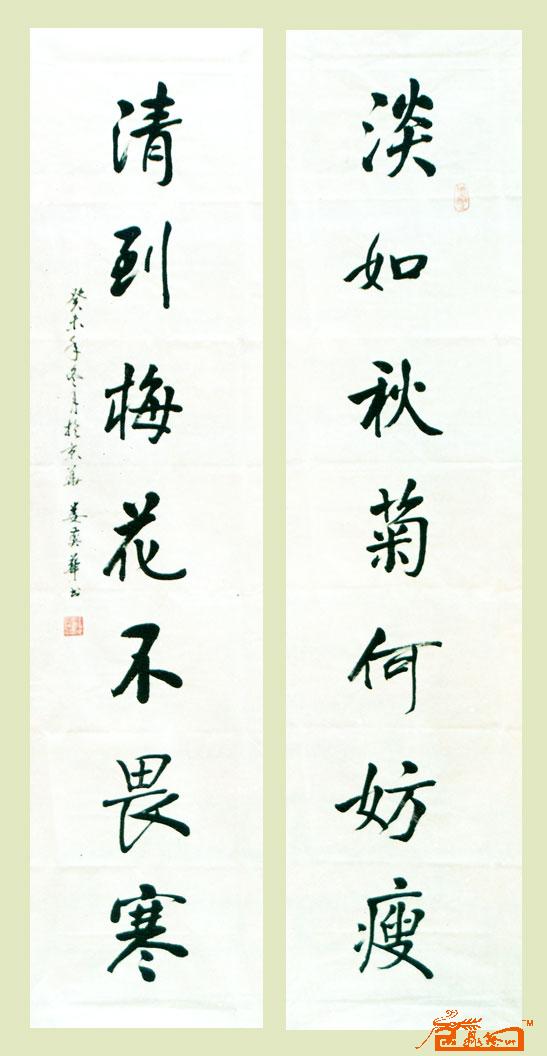 淡如秋菊何妨瘦
清到梅花不畏寒
癸未年冬月於京華 娄
TM